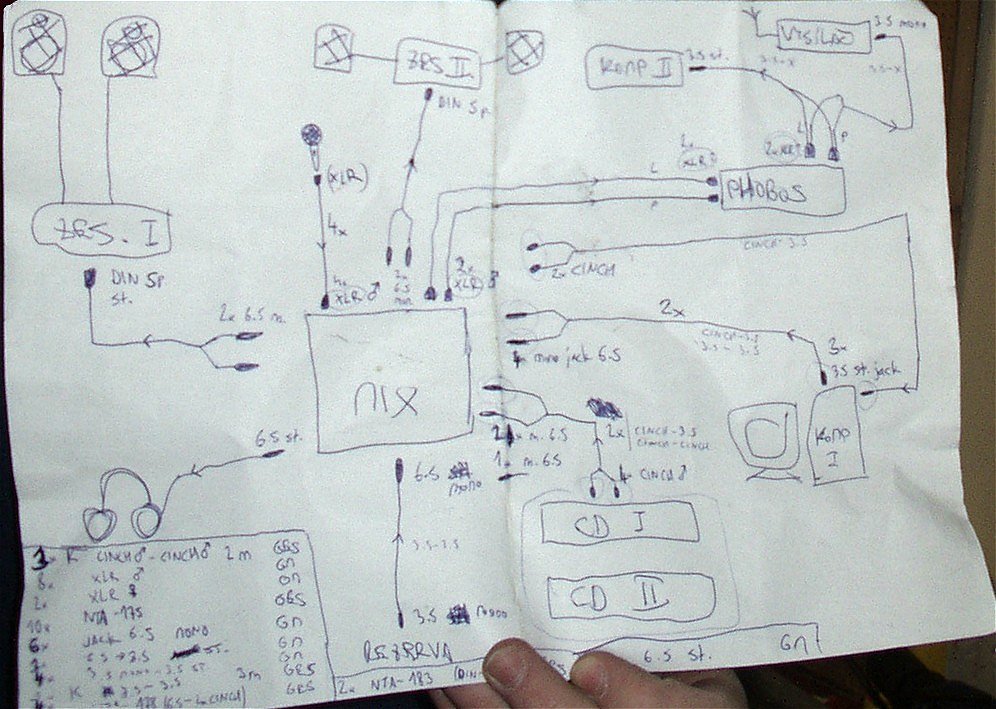 ZES. II
DIN 5p
KOMP II
3.5 st.
VYSÍLAČ
3.5 mono
3.5-X
L
P
2x
XLR
PHOBOS
L
P
(XLR)
4x
ZES. I
DIN 5p
st.
2x 6.5 m.
4x
XLR ♂
2x
6.5
mon.
2x
XLR ♂
2x CINCH
CINCH-3.5
2x
CINCH-3.5
3.5-3.5
mono jack 6.5
3x
3.5 st. jack
KOMP
I
MIX
6.5 st.
m. 6.5
1x m. 6.5
2x
CINCH-3.5
CINCH-CINCH
CINCH ♂
CD I
CD II
6.5
mono
3.5-3.5
3.5
mono
REZERVA
K CINCH♂-CINCH♂ 2m GES
8x XLR ♂ GM
2x XLR ♀ GM
10x NTA-175 GES
6x JACK 6.5 MONO GM
6.5→3.5 ST. GM
3.5 mono-3.5 ST. GM
K 3.5-3.5 3m GES
(6.5-2xCINCH) GES
2x NTA-183 (DIN-
6.5 st. GM